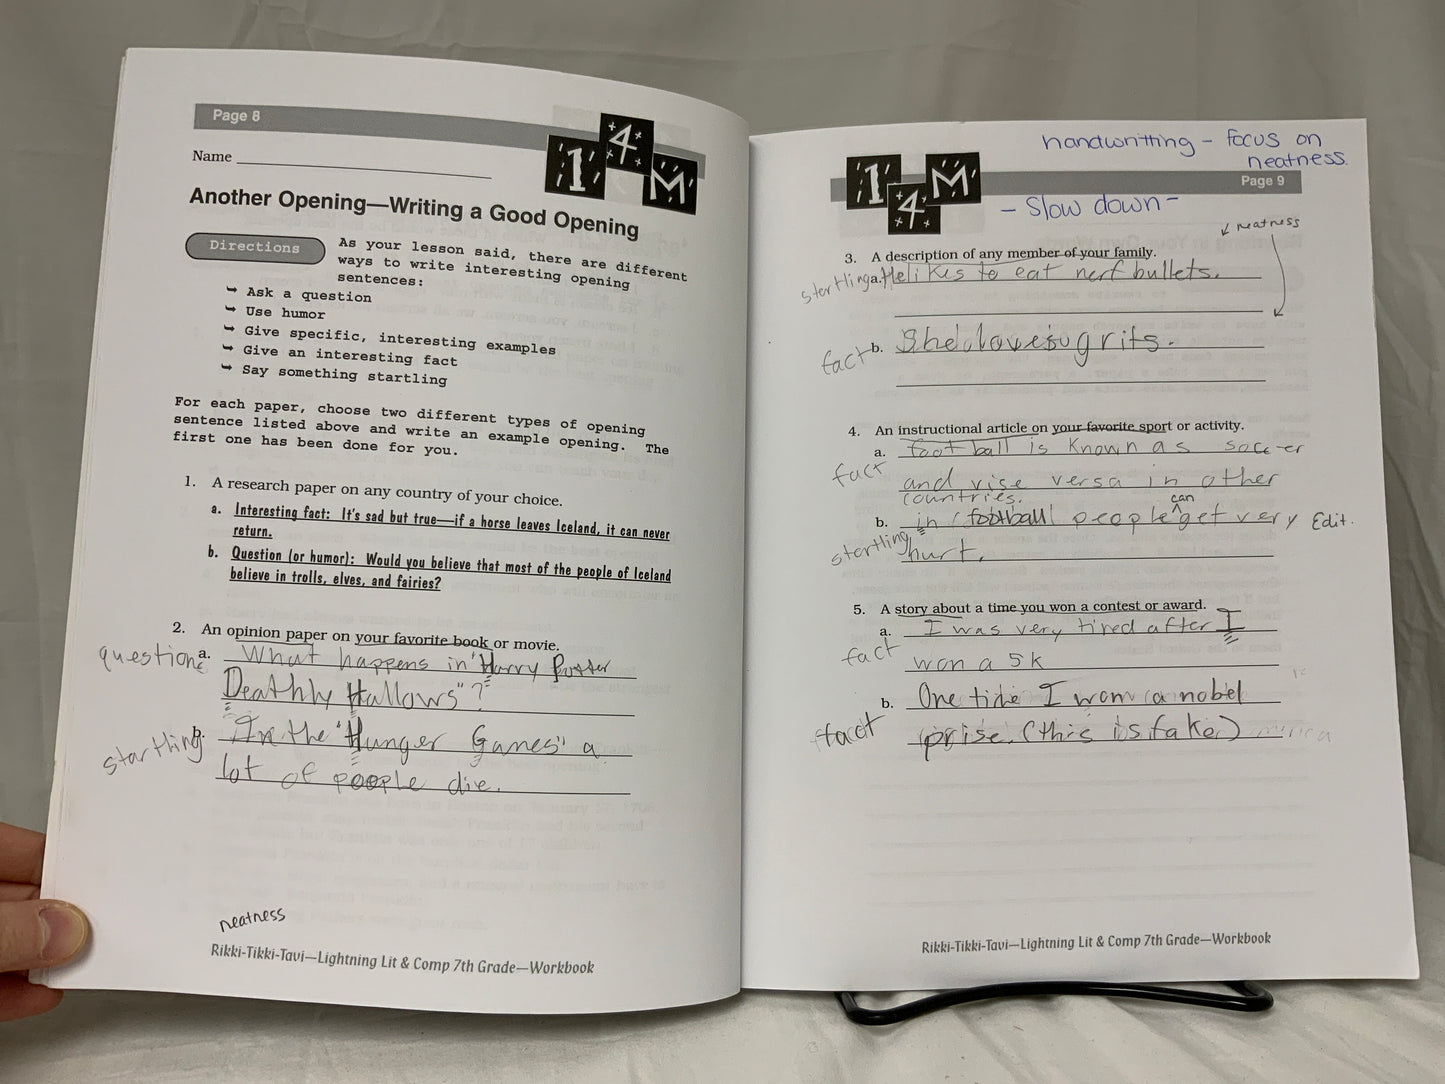 Page 8
1 4 M
Name
Another Opening—Writing a Good Opening
Directions
As your lesson said, there are different
ways to write interesting opening
sentences:
Ask a question
Use humor
Give specific, interesting examples
Give an interesting fact
Say something startling
For each paper, choose two different types of opening
sentence listed above and write an example opening. The
first one has been done for you.
1. A research paper on any country of your choice.
a. Interesting fact: It's sad but true—if a horse leaves Iceland, it can never
return.
b. Question (or humor): Would you believe that most of the people of Iceland
believe in trolls, elves, and fairies?
2. An opinion paper on your favorite book or movie.
question a. What happens in "Harry Potter
Deathly Hallows"?
startling b. In the "Hunger Games" a
lot of people die.
neatness
Rikki-Tikki-Tavi—Lightning Lit & Comp 7th Grade—Workbook
handwritting - focus on
neatness.
Page 9
1 4 M
- Slow down -
neatness
3. A description of any member of your family.
startling a. He likes to eat nerf bullets.
fact b. She loves grits.
4. An instructional article on your favorite sport or activity.
a. football is known as soccer
fact and vise versa in other
countries.
can
b. in football people get very Edit.
startling hurt.
5. A story about a time you won a contest or award.
a. I was very tired after I
fact won a 5k
b. One time I won a nobel
fact prise. (this is fake)
Rikki-Tikki-Tavi—Lightning Lit & Comp 7th Grade—Workbook